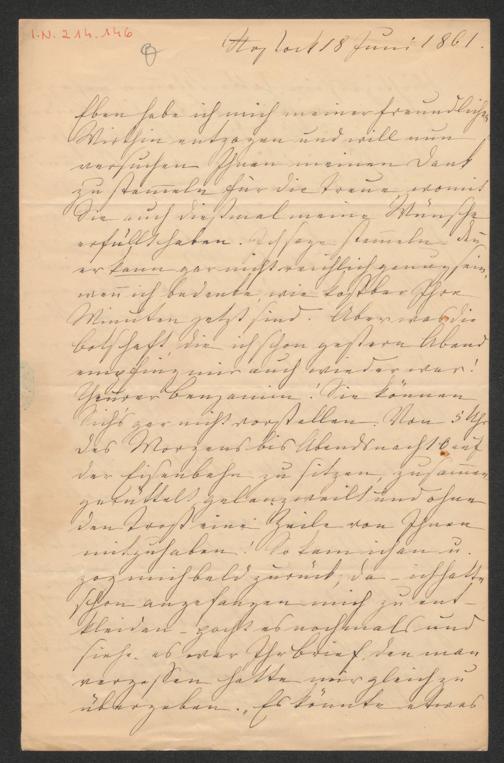 I.N. 214.146
Rostock 18 Juni 1861.
Eben habe ich mich meiner freundlichen
Wirthin entzogen und will nun
versuchen Ihnen meinen Dank
zu stameln für die Treue womit
Sie auch dießmal meine Wünsche
erfüllt haben. Ich sage stameln denn
er kann gar nicht reichlich genug sein,
wenn ich bedenke, wie kostbar Ihre
Minuten jetzt sind. Aber was die
Botschaft, die ich schon gestern Abend
empfing mir auch wieder war!
Theurer Benjamin! Sie können
Sichs gar nicht vorstellen. Von 5 Uhr
des Morgens bis Abends nach 10 auf
der Eisenbahn zu sitzen, zusammen
gerüttelt gelangweilt und ohne
den Trost eine Zeile von Ihnen
mitzuhaben! So kam ich an u.
zog mich bald zurück, da – ich hatte
schon angefangen mich zu ent-
kleiden – pocht es nochmals und
siehe es war Ihr Brief, den man
vergessen hatte mir gleich zu
übergeben. „Es könnte etwas